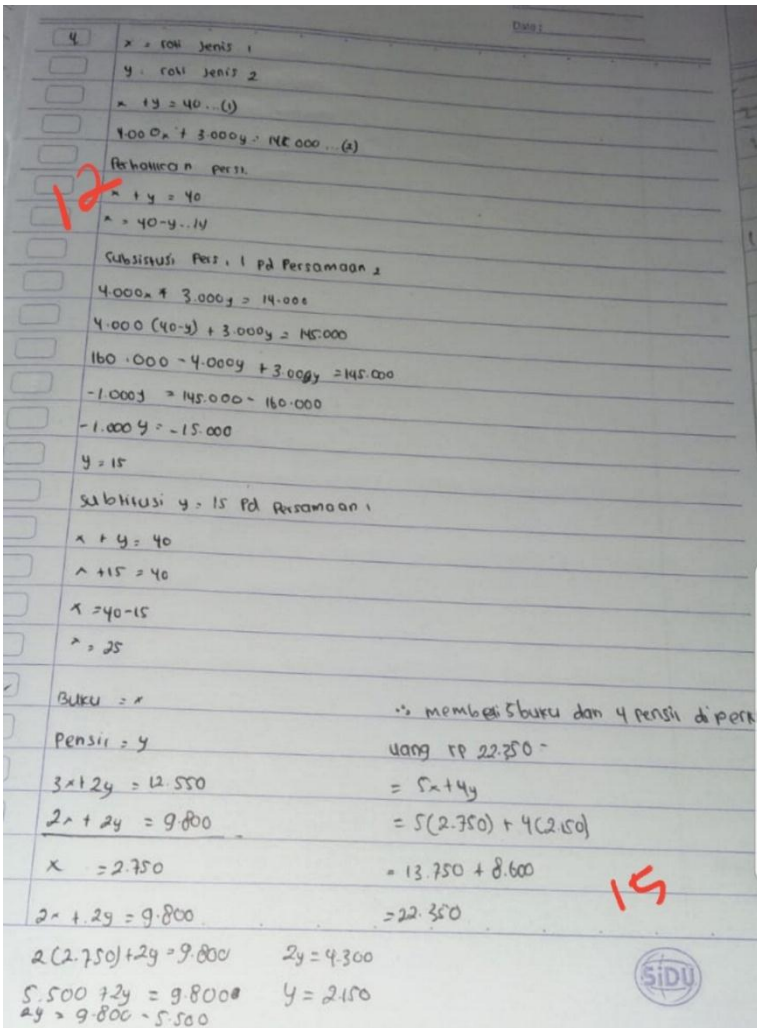 Date:
4
x = roti Jenis 1
y = roti Jenis 2
x + y = 40 ... (1)
4.000x + 3.000y = 145.000 ... (2)
Pers 1.
12
x + y = 40
x = 40-y
Subsistusi Pers. 1 Pd Persamaan 2
4.000x + 3.000y = 14.000
4.000 (40-y) + 3.000y = 145.000
160.000 - 4.000y + 3.000y = 145.000
-1.000y = 145.000 - 160.000
-1.000 y = -15.000
y = 15
Subtitusi y = 15 Pd Persamaan 1
x + y = 40
x + 15 = 40
x = 40-15
x = 25
Buku = x
Pensil = y
3x + 2y = 12.550
2x + 2y = 9.800 -
x = 2.750
2x + 2y = 9.800
2(2.750)+2y = 9.800
5.500 + 2y = 9.800
2y = 9.800 - 5.500
2y = 4.300
y = 2.150
∴ membeli 5 buku dan 4 pensil diperk
uang rp 22.350 -
= 5x+4y
= 5(2.750) + 4(2.150)
= 13.750 + 8.600
= 22.350
15
SiDU